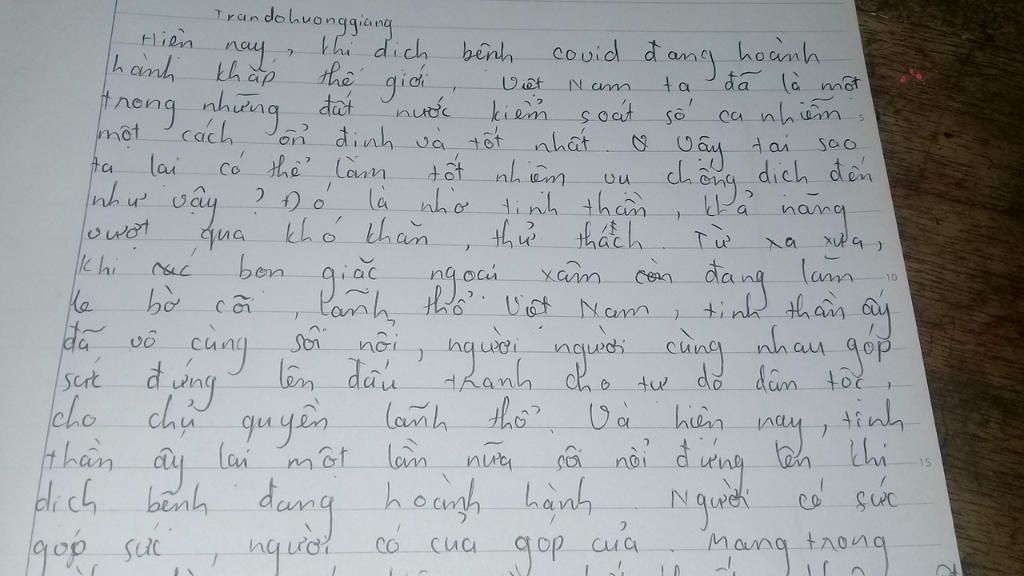 Trandohuonggiang
Hiện nay, khi dịch bệnh covid đang hoành
hành khắp thế giới, Việt Nam ta đã là một
trong những đất nước kiểm soát số ca nhiễm
một cách ổn định và tốt nhất. Vậy tại sao
ta lại có thể làm tốt nhiệm vụ chống dịch đến
như vậy? Đó là nhờ tinh thần, khả năng
vượt qua khó khăn, thử thách. Từ xa xưa,
khi các bọn giặc ngoại xâm còn đang lăm
le bờ cõi, lãnh thổ Việt Nam, tinh thần ấy
đã vô cùng sôi nổi, người người cùng nhau góp
sức đứng lên đấu tranh cho tự do dân tộc,
cho chủ quyền lãnh thổ. Và hiện nay, tinh
thần ấy lại một lần nữa sôi nổi đứng lên khi
dịch bệnh đang hoành hành. Người có sức
góp sức, người có của góp của. Mang trong